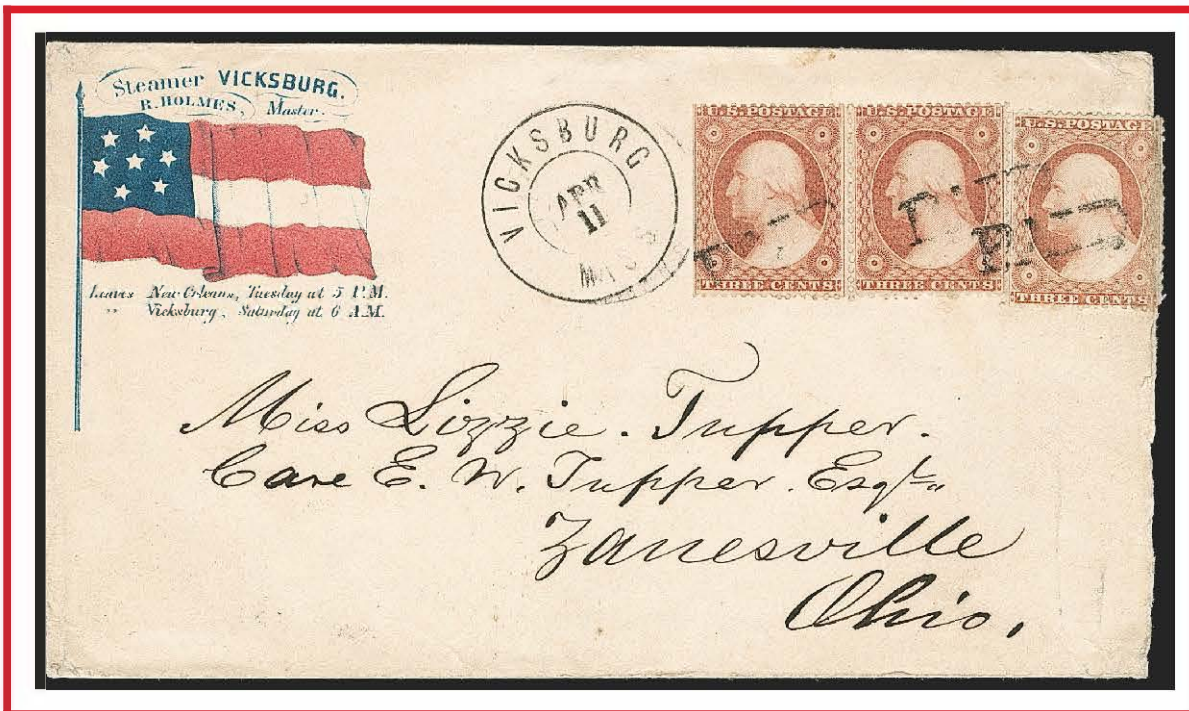 Steamer VICKSBURG.
R. HOLMES, Master.
Leaves New Orleans, Tuesday at 5 P.M.
" Vicksburg, Saturday at 6 A.M.
VICKSBURG
APR
11
MISS
U.S. POSTAGE
THREE CENTS
U.S. POSTAGE
THREE CENTS
U.S. POSTAGE
THREE CENTS
PAID
Miss Lizzie. Tupper.
Care E. W. Tupper. Esqr.
Zanesville
Ohio.